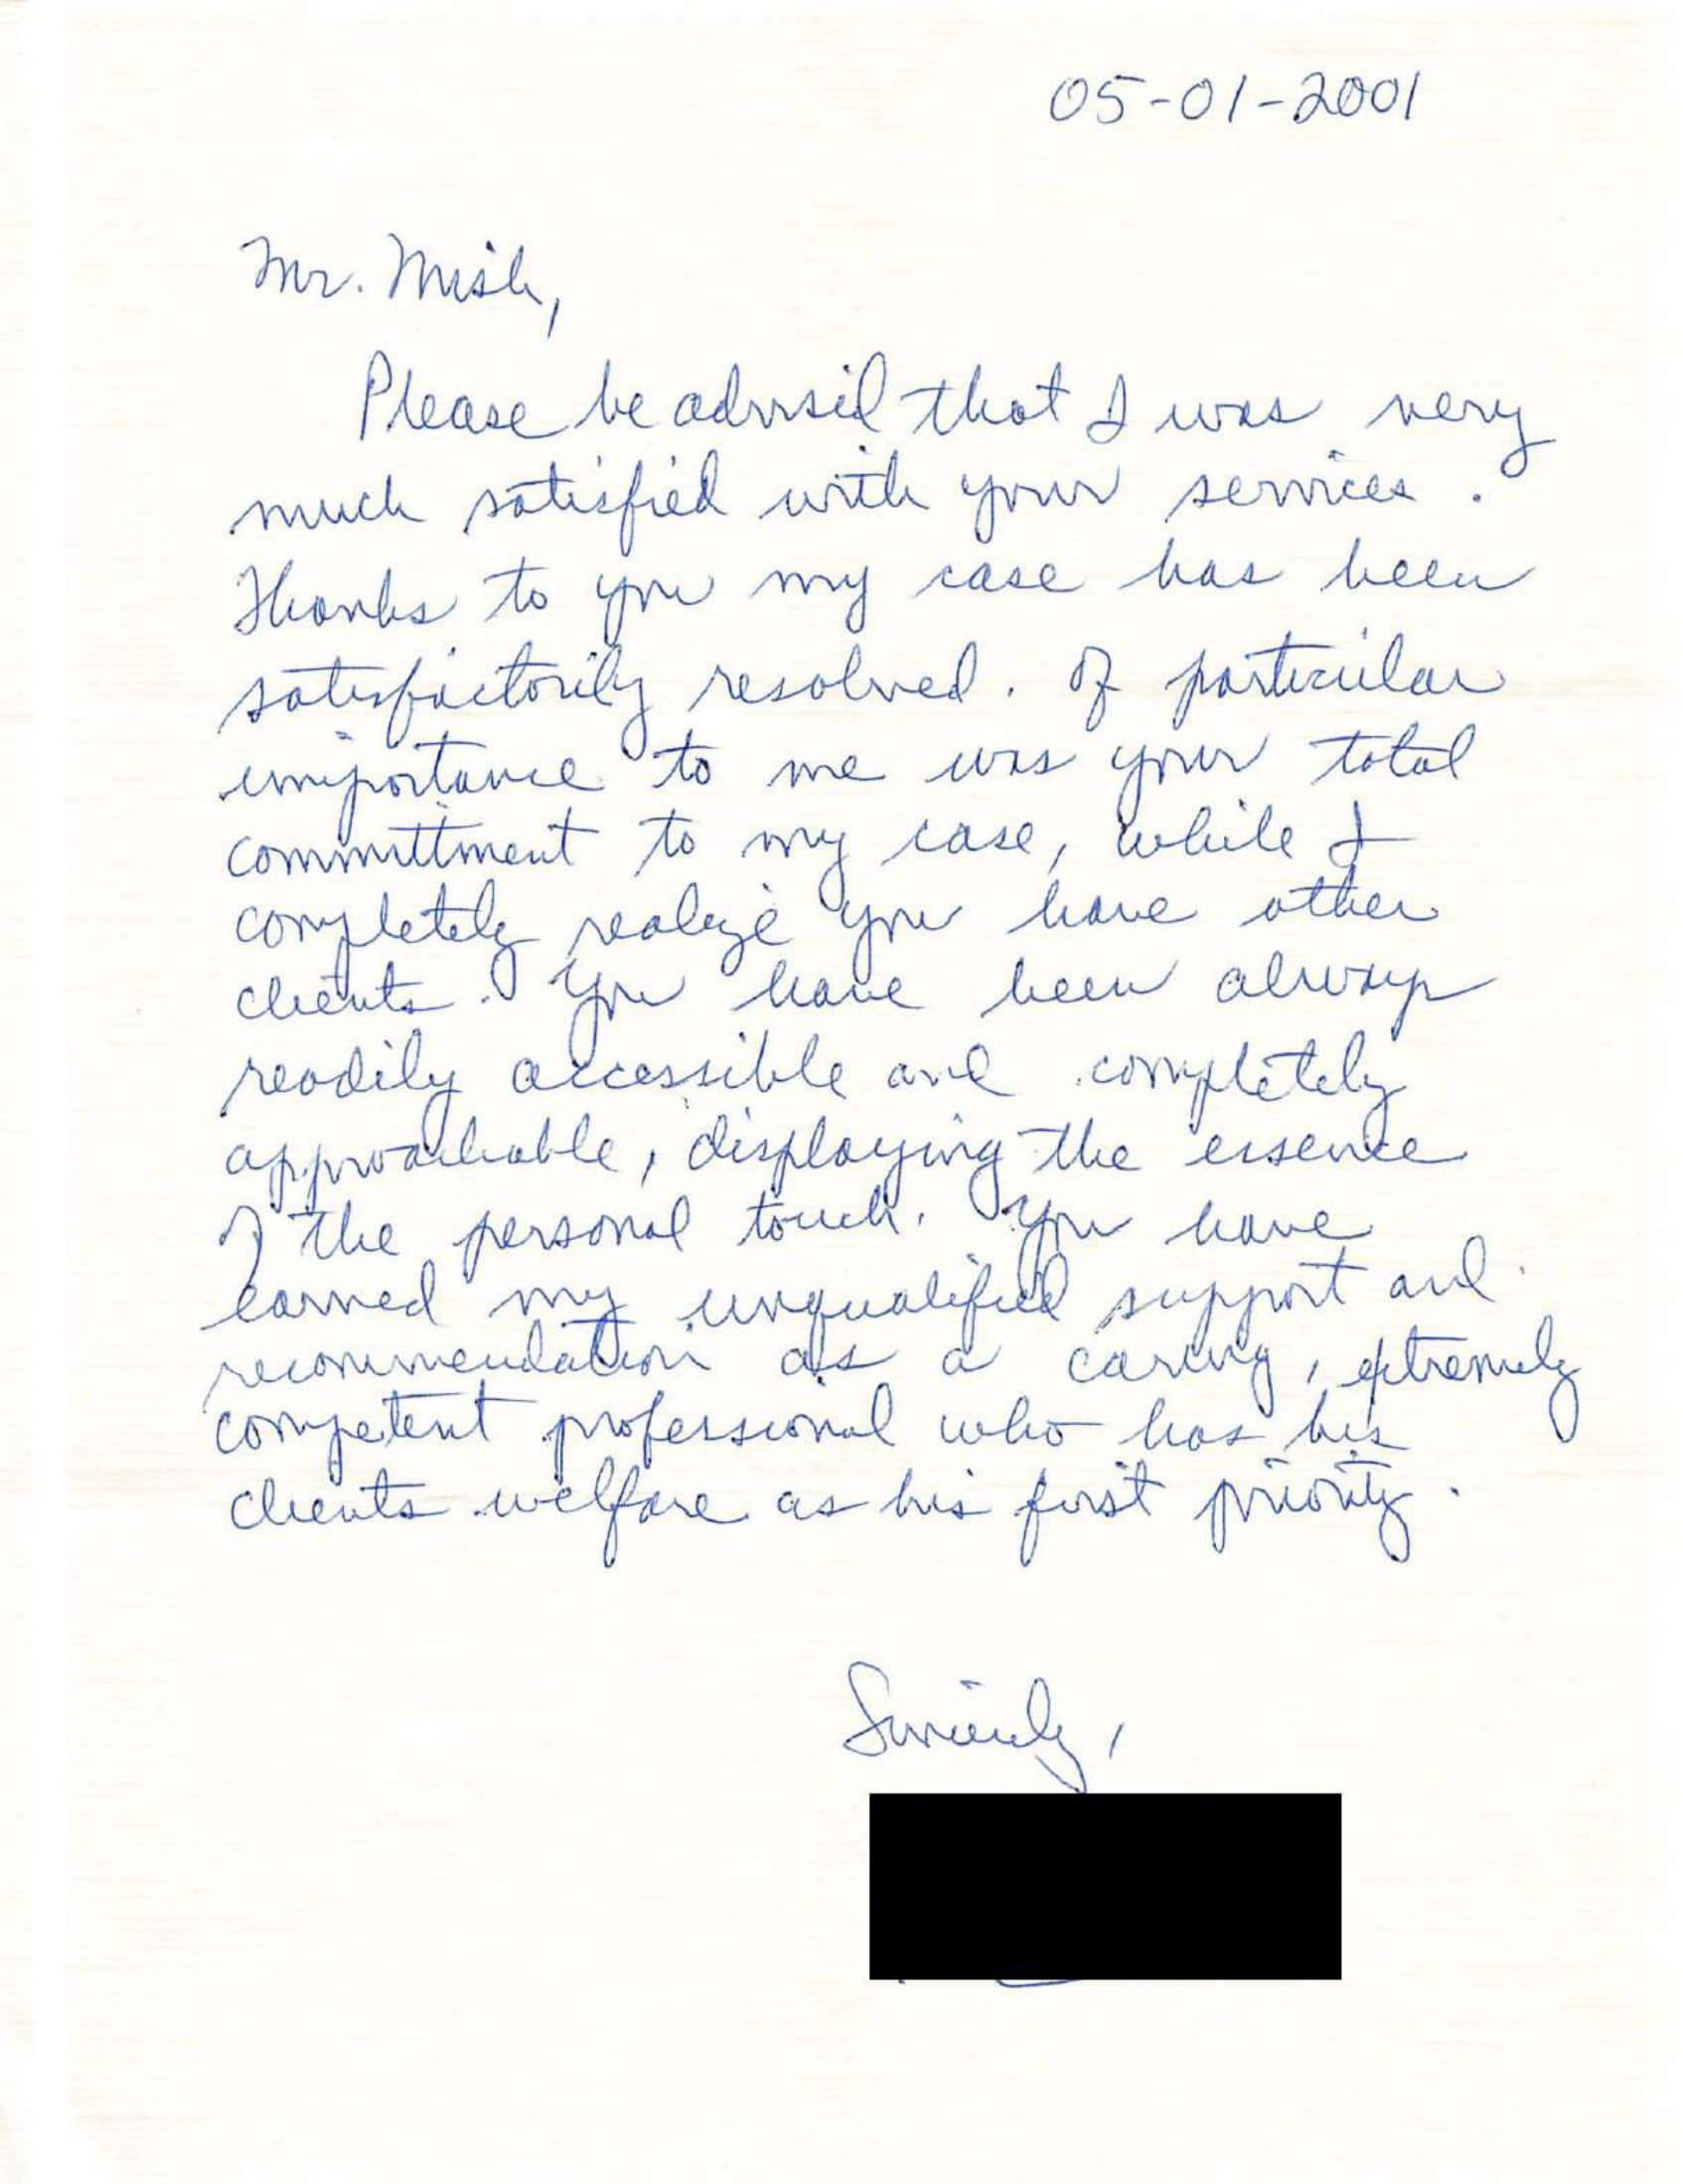 05-01-2001
Mr. Mish,
Please be advised that I was very
much satisfied with your services.
Thanks to you my case has been
satisfactorily resolved. Of particular
importance to me was your total
committment to my case, while I
completely realize you have other
clients. You have been always
readily accessible and completely
approachable, displaying the essence
of the personal touch. You have
earned my unqualified support and
recommendation as a caring, extremely
competent professional who has his
clients welfare as his first priority.
Sincerely,